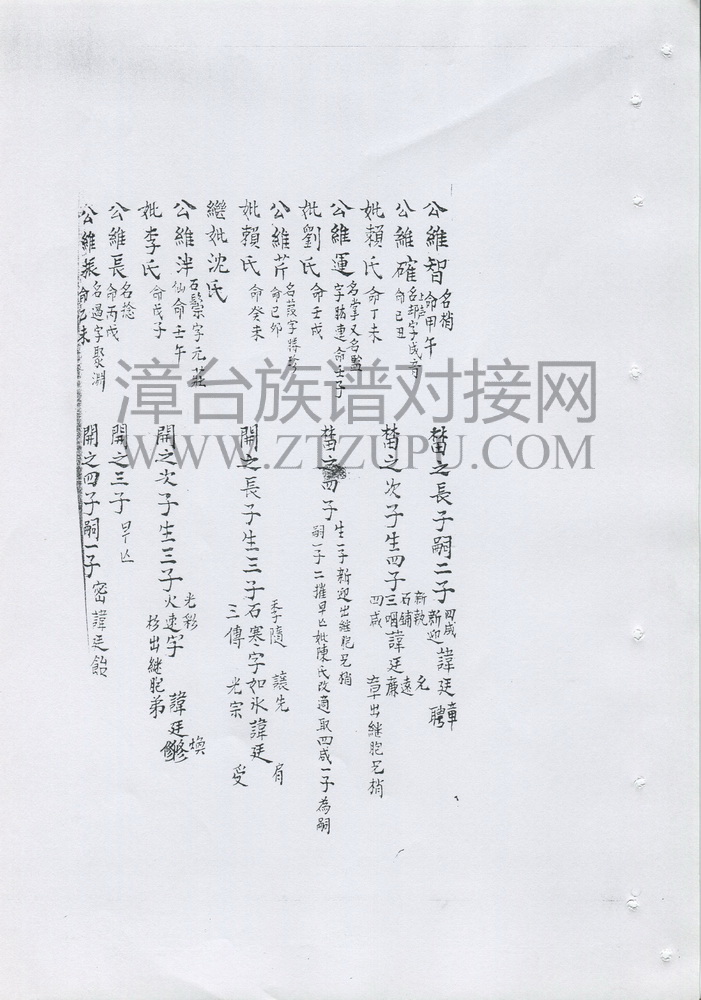 公維智 名梢 命甲午 之長子嗣二子 四咸 新迎 諱廷 章 聘
公維確 命己丑 之次子生四子 新執 石鋪 三咽 四咸 諱廷 允 遠 廉 章出継胞兄梢
妣賴氏 命丁未
公維運 名掌又名監 命壬子 之四子 生一子新迎出継胞兄梢 嗣一子二摧早亡妣陳氏改適取四咸一子為嗣
妣劉氏 命壬戌
公維芹 命己卯 開之長子生三子 季隨 石寒字如氷 三傳 諱廷 讓先 光宗 受
妣賴氏 命癸未
継妣沈氏
公維泮 石鬃字元莊 仙命壬午 開之次子生三子 光彩 火速字 出継胞弟 諱廷 煥 修
妣李氏 命戊子
公維長 名捻 命丙戌 開之三子 早亡
公維振 名過字聚淵 命己未 開之四子嗣一子 密諱廷飴
漳台族谱对接网
WWW.ZTZUPU.COM